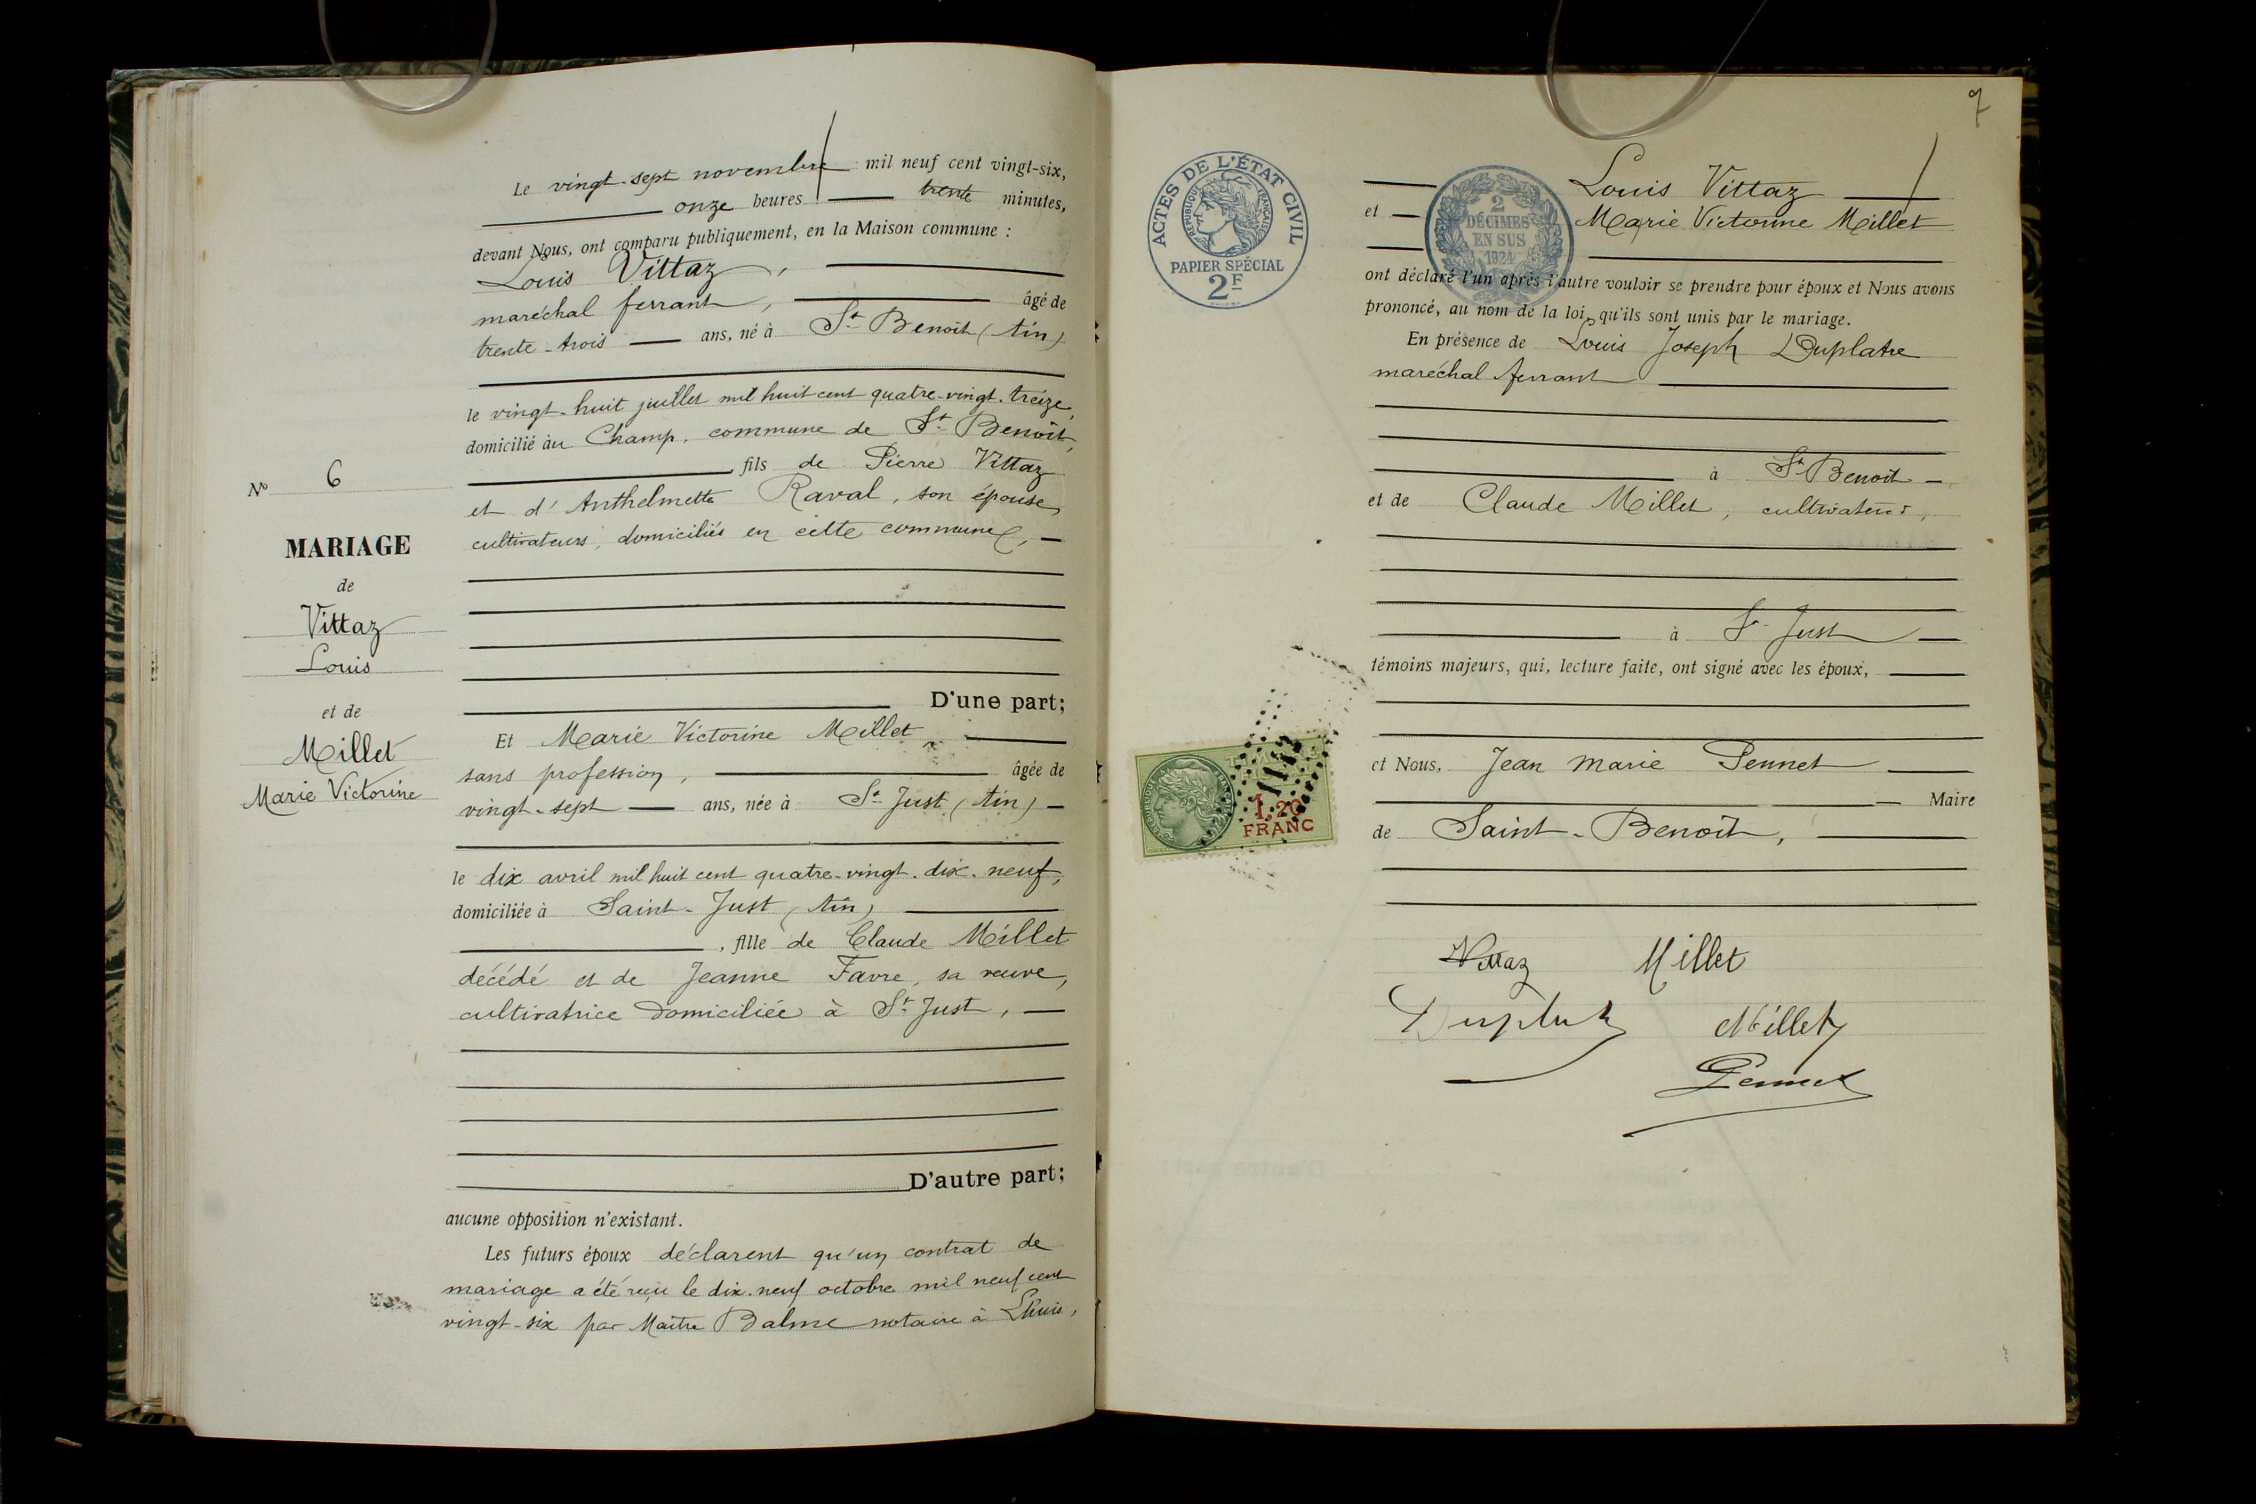 Le vingt-sept novembre mil neuf cent vingt-six,
onze heures trente minutes,
devant Nous, ont comparu publiquement, en la Maison commune :
Louis Vittaz,
maréchal ferrant, âgé de
trente-trois ans, né à St Benoît (Ain)
le vingt-huit juillet mil huit cent quatre-vingt-treize,
domicilié au Champ, commune de St Benoît,
fils de Pierre Vittaz
et d'Anthelmette Raval, son épouse,
cultivateurs, domiciliés en cette commune,
D'une part;
No 6
MARIAGE
de
Vittaz
Louis
et de
Millet
Marie Victorine
Et Marie Victorine Millet,
sans profession, âgée de
vingt-sept ans, née à St Just (Ain)
le dix avril mil huit cent quatre-vingt-dix-neuf,
domiciliée à Saint-Just (Ain)
, fille de Claude Millet
décédé et de Jeanne Favre, sa veuve,
cultivatrice domiciliée à St Just,
D'autre part;
aucune opposition n'existant.
Les futurs époux déclarent qu'un contrat de
mariage a été reçu le dix-neuf octobre mil neuf cent
vingt-six par Maître Balme notaire à Lhuis,
7
ACTES DE L'ÉTAT CIVIL
RÉPUBLIQUE FRANÇAISE
PAPIER SPÉCIAL
2F
2
DÉCIMES
EN SUS
1924
Louis Vittaz
et Marie Victorine Millet
ont déclaré l'un après l'autre vouloir se prendre pour époux et Nous avons
prononcé, au nom de la loi, qu'ils sont unis par le mariage.
En présence de Louis Joseph Duplatre
maréchal ferrant
à St Benoit
et de Claude Millet, cultivateur,
à St Just
témoins majeurs, qui, lecture faite, ont signé avec les époux,
et Nous, Jean Marie Pennet
Maire
de Saint-Benoît,
1,20
FRANC
Vittaz Millet
Millet
Pennet